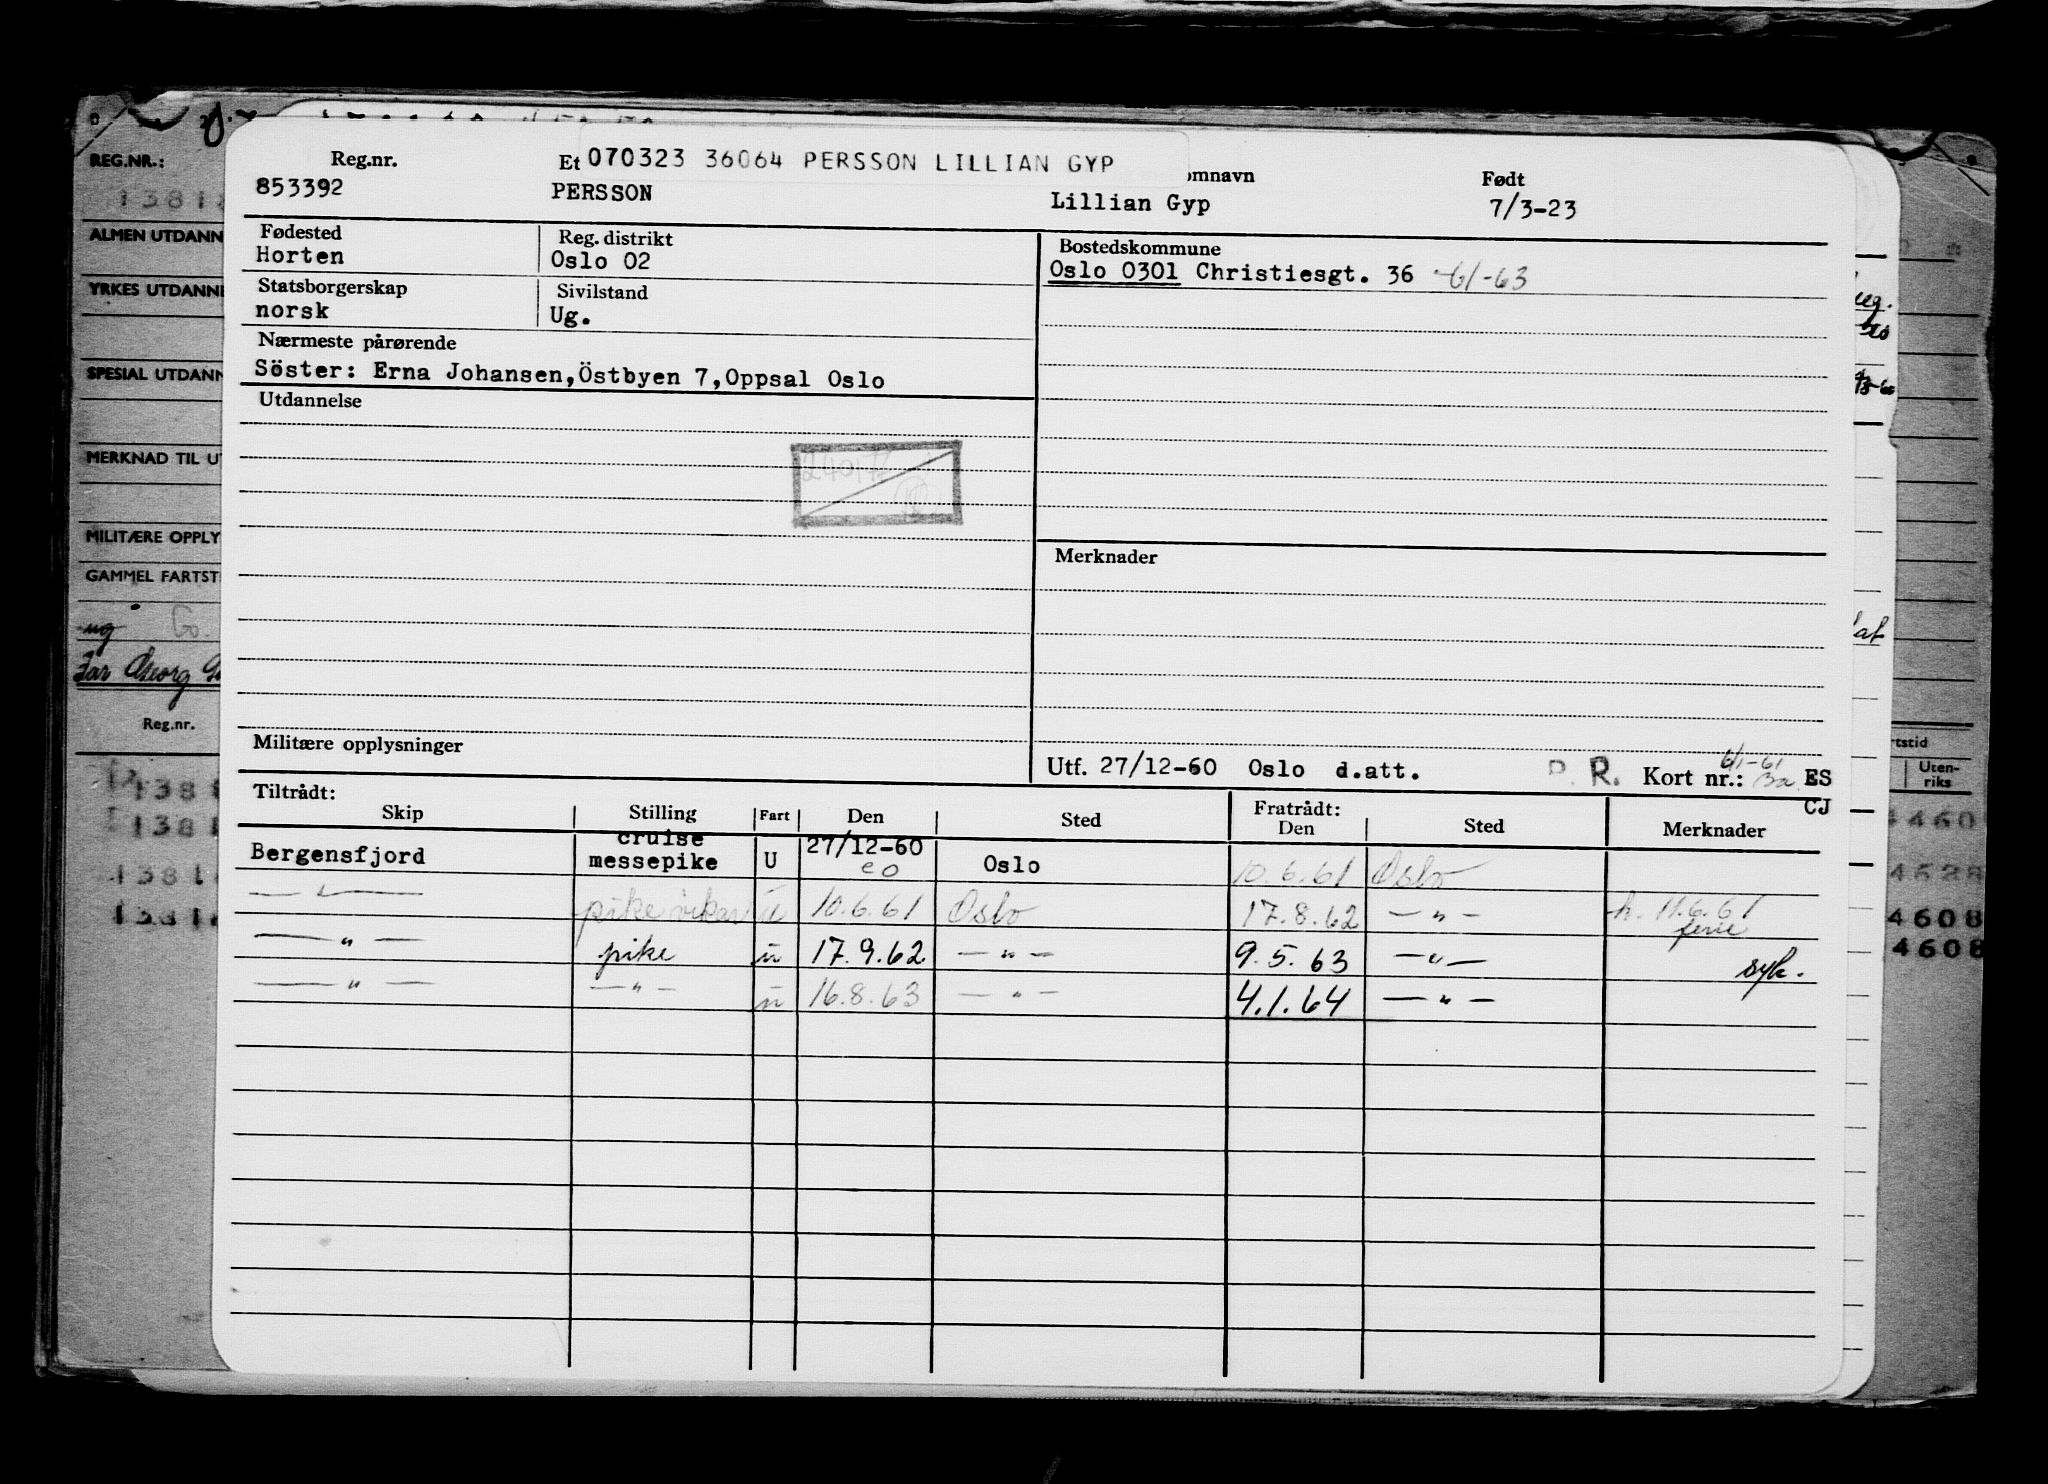 REG.NR.:
1381
ALMEN UTDANN
YRKES UTDANN
SPESIAL UTDANN
MERKNAD TIL UT
MILITÆRE OPPLY
GAMMEL FARTST
ug Go.
Far Georg
Reg.nr.
1381
1381
1381
1381
070323 36064 PERSSON LILLIAN GYP
Reg.nr. Et omnavn Født
853392 PERSSON Lillian Gyp 7/3-23
Fødested Reg. distrikt Bostedskommune
Horten Oslo 02 Oslo 0301 Christiesgt. 36 6/1-63
Statsborgerskap Sivilstand
norsk Ug.
Nærmeste pårørende
Söster: Erna Johansen,Östbyen 7,Oppsal Oslo
Utdannelse
Merknader
Militære opplysninger
Utf. 27/12-60 Oslo d.att. P. R. Kort nr.: 6/1-61 ES
CJ
Tiltrådt: Fratrådt:
Skip Stilling Fart Den Sted Den Sted Merknader
Bergensfjord cruise messepike U 27/12-60 eo Oslo 10.6.61 Oslo
— " — pike vikar u 10.6.61 Oslo 17.8.62 — " — h. 11.6.61 ferie
— " — pike u 17.9.62 — " — 9.5.63 — " — syk.
— " — — " — u 16.8.63 — " — 4.1.64 — " —
rtstid
Uten-
riks
4460
4528
4608
4608